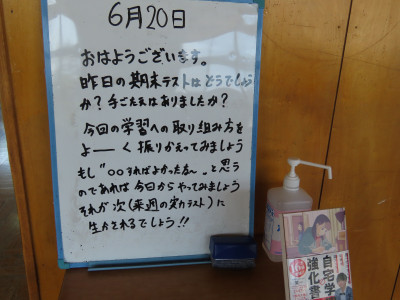 6月20日
おはようございます。
昨日の期末テストはどうでしょう
か？手ごたえはありましたか？
今回の学習への取り組み方を
よーく振りかえってみましょう
もし"○○すればよかったな〜"と思う
のであれば今日からやってみましょう
それが次(来週の実力テスト)に
生かされるでしょう!!
自宅学
強化書